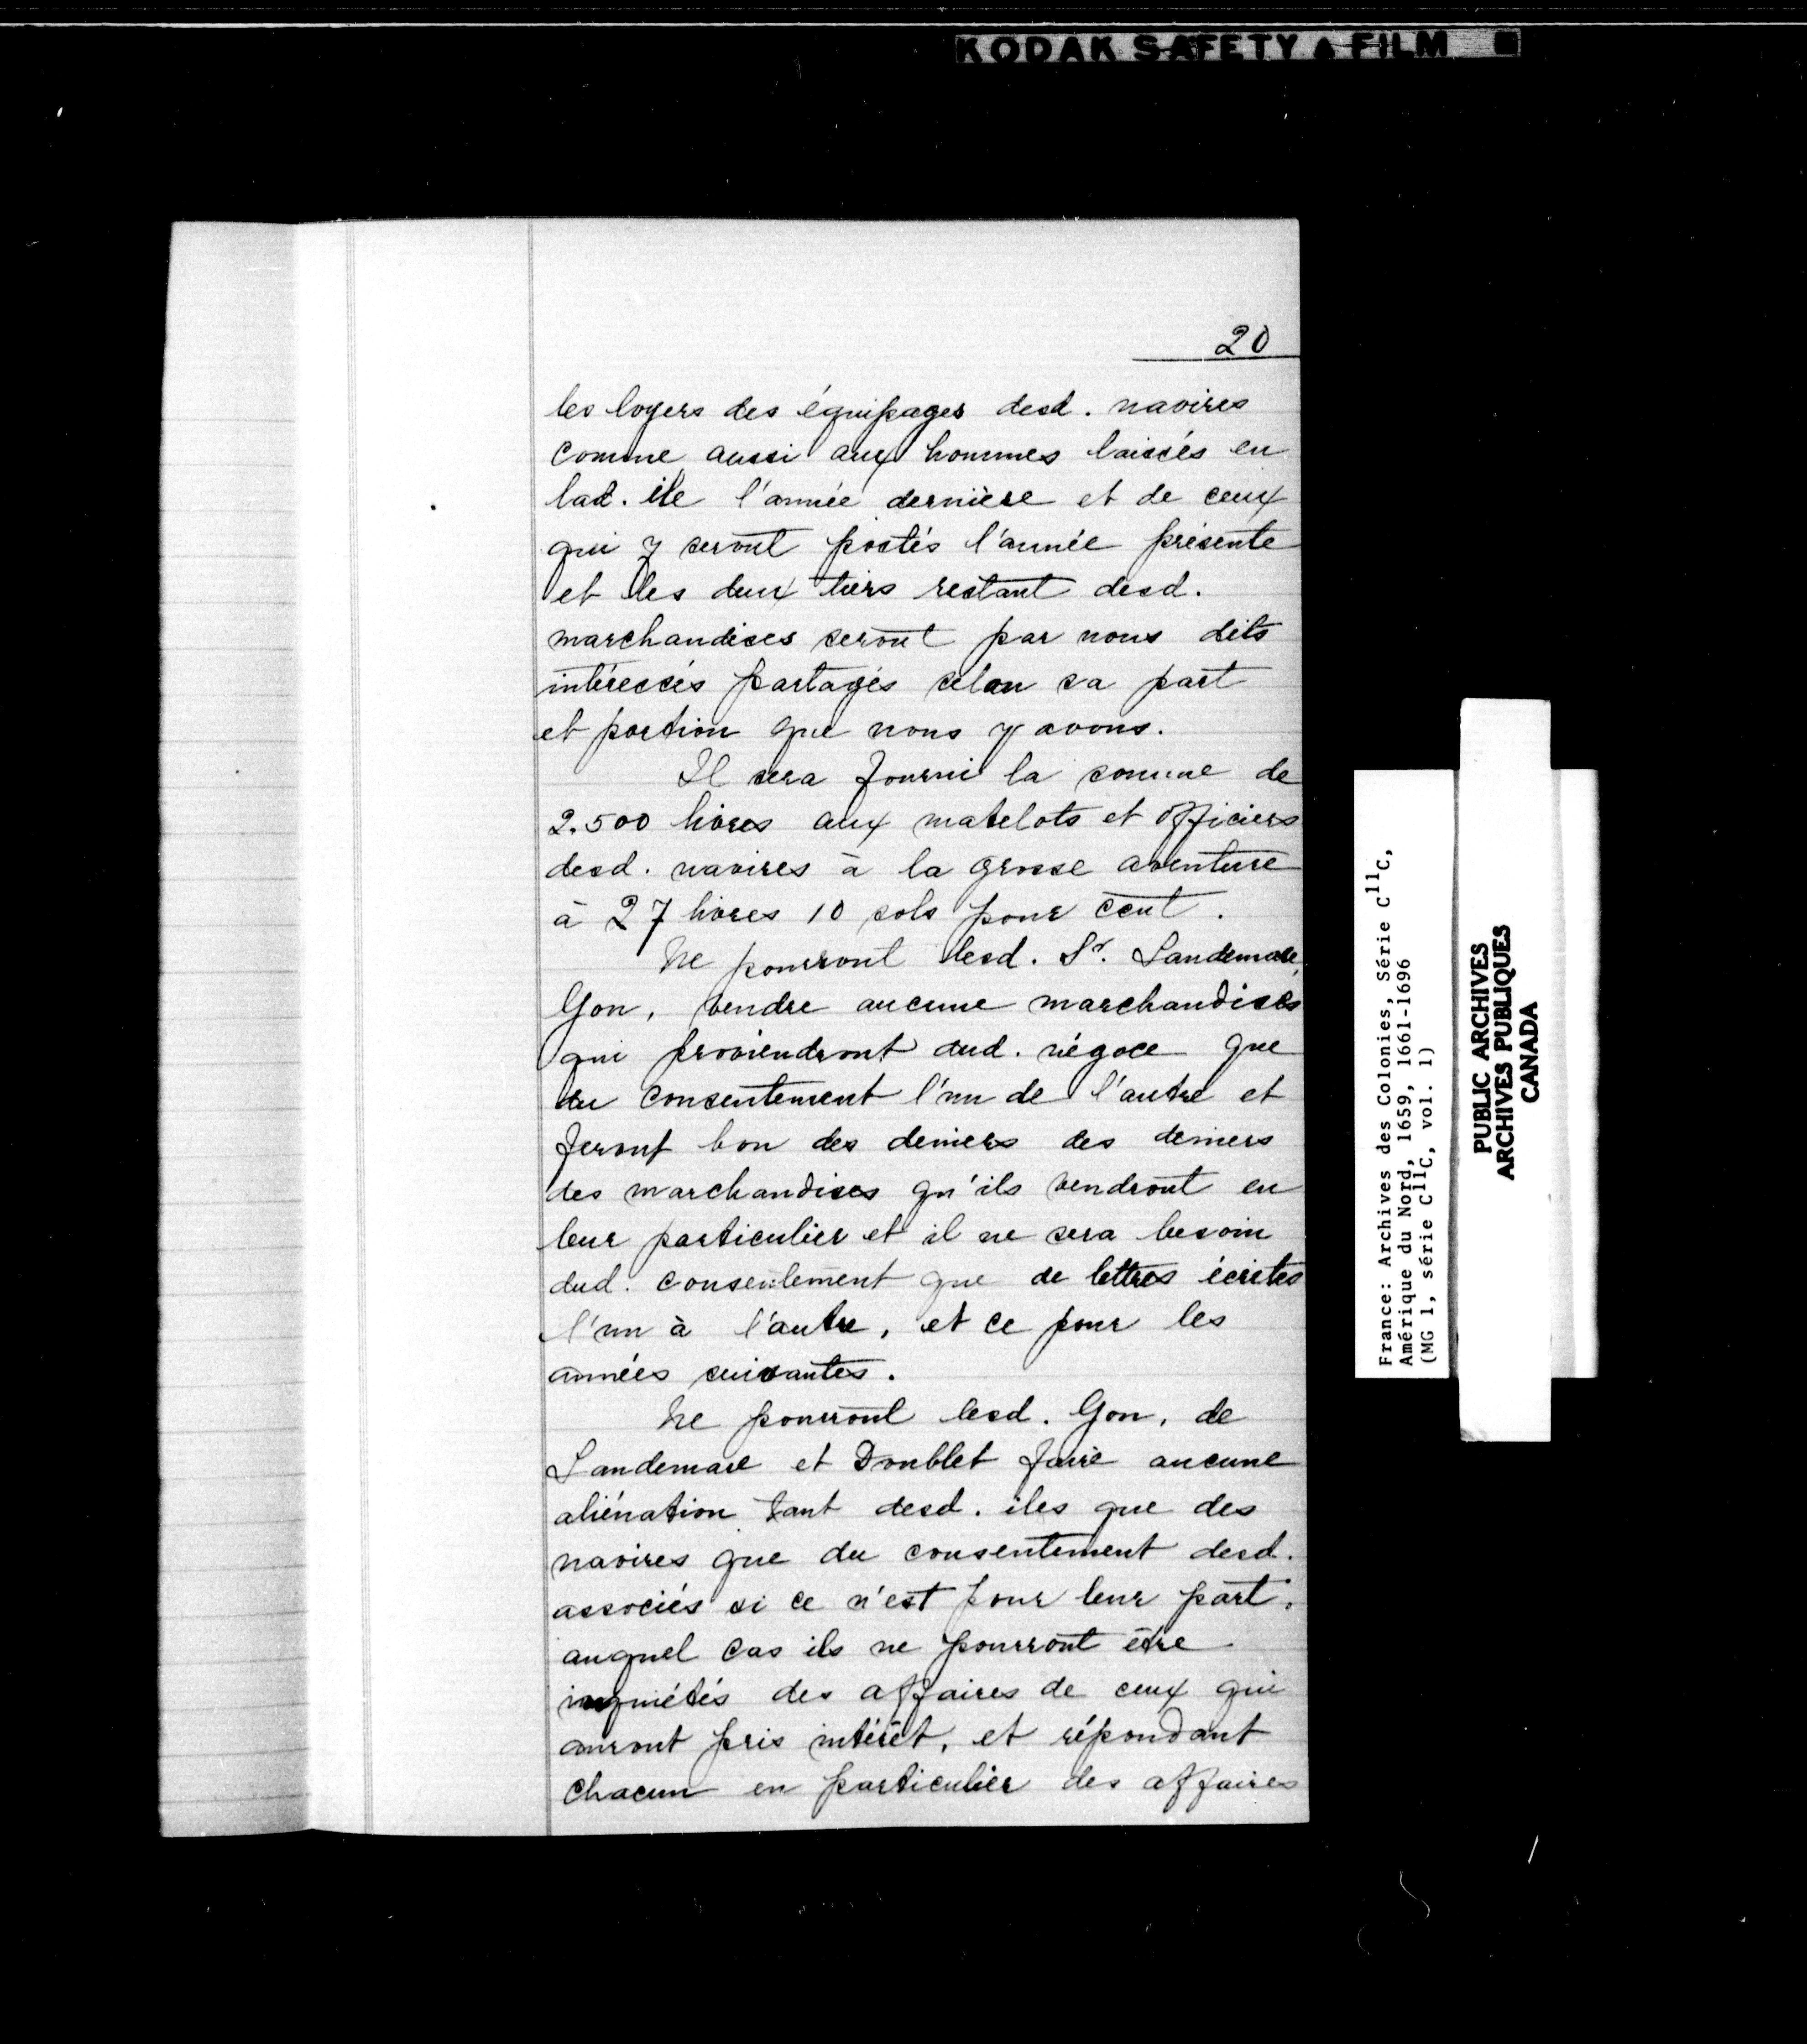 KODAK SAFETY FILM
20
les loyers des équipages desd. navires
comme aussi aux hommes laissés en
lad. île l'année dernière et de ceux
qui y seront postés l'année présente
et les deux tiers restant desd.
marchandises seront par nous dits
intéressés partagés selon sa part
et portion que nous y avons.
Il sera fourni la somme de
2.500 livres aux matelots et officiers
desd. navires à la grosse aventure
à 27 livres 10 sols pour cent.
Ne pourront lesd. Sr. Landemare,
Gon, vendre aucune marchandises
qui proviendront dud. négoce que
du consentement l'un de l'autre et
feront bon des deniers des deniers
des marchandises qu'ils vendront en
leur particulier et il ne sera besoin
dud. consentement que de lettres écrites
l'un à l'autre, et ce pour les
années suivantes.
Ne pourront lesd. Gon, de
Landemare et Doublet faire aucune
aliénation tant desd. iles que des
navires que du consentement desd.
associés si ce n'est pour leur part,
auquel cas ils ne pourront être
inquiétés des affaires de ceux qui
auront pris intérêt, et répondant
chacun en particulier des affaires
France: Archives des Colonies, Série C11C,
Amérique du Nord, 1659, 1661-1696
(MG 1, série C11C, vol. 1)
PUBLIC ARCHIVES
ARCHIVES PUBLIQUES
CANADA